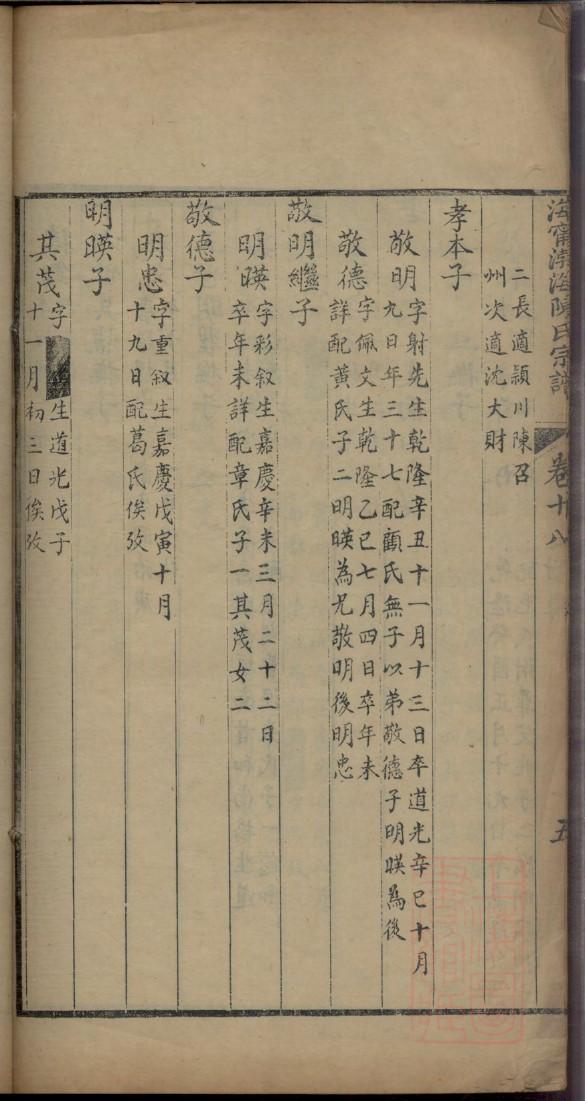 海甯渤海陳氏宗譜
卷十八
五
二長適頴川陳召
州次適沈大財
孝本子
敬明字射先生乾隆辛丑十一月十三日卒道光辛巳十月
九日年三十七配顧氏無子以弟敬德子明暎為後
敬德字佩文生乾隆乙巳七月四日卒年未
詳配黃氏子二明暎為兄敬明後明忠
敬明繼子
明暎字彩叙生嘉慶辛未三月二十二日
卒年未詳配章氏子一其茂女二
敬德子
明忠字重叙生嘉慶戊寅十月
十九日配葛氏俟攷
明暎子
其茂字生道光戊子
十一月初三日俟攷